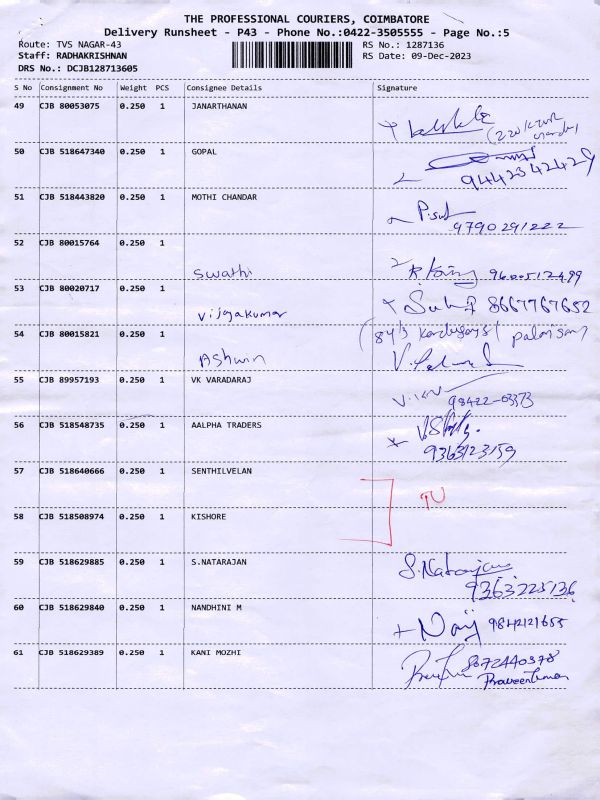 THE PROFESSIONAL COURIERS, COIMBATORE
Delivery Runsheet - P43 - Phone No.:0422-3505555 - Page No.:5
Route: TVS NAGAR-43 RS No.: 1287136
Staff: RADHAKRISHNAN RS Date: 09-Dec-2023
DRS No.: DCJB128713605
S No Consignment No Weight PCS Consignee Details Signature
49 CJB 80053075 0.250 1 JANARTHANAN
50 CJB 518647340 0.250 1 GOPAL
9442342429
51 CJB 518443820 0.250 1 MOTHI CHANDAR
9790291222
52 CJB 80015764 0.250 1
Swathi 9600512499
53 CJB 80020717 0.250 1
Vijayakumar 8667767652
54 CJB 80015821 0.250 1
Ashwin
55 CJB 89957193 0.250 1 VK VARADARAJ
98422-03373
56 CJB 518548735 0.250 1 AALPHA TRADERS
9363123159
57 CJB 518640666 0.250 1 SENTHILVELAN
58 CJB 518508974 0.250 1 KISHORE
59 CJB 518629885 0.250 1 S.NATARAJAN
S.Natarajan
9363225136
60 CJB 518629840 0.250 1 NANDHINI M
9842121655
61 CJB 518629389 0.250 1 KANI MOZHI
8072440378